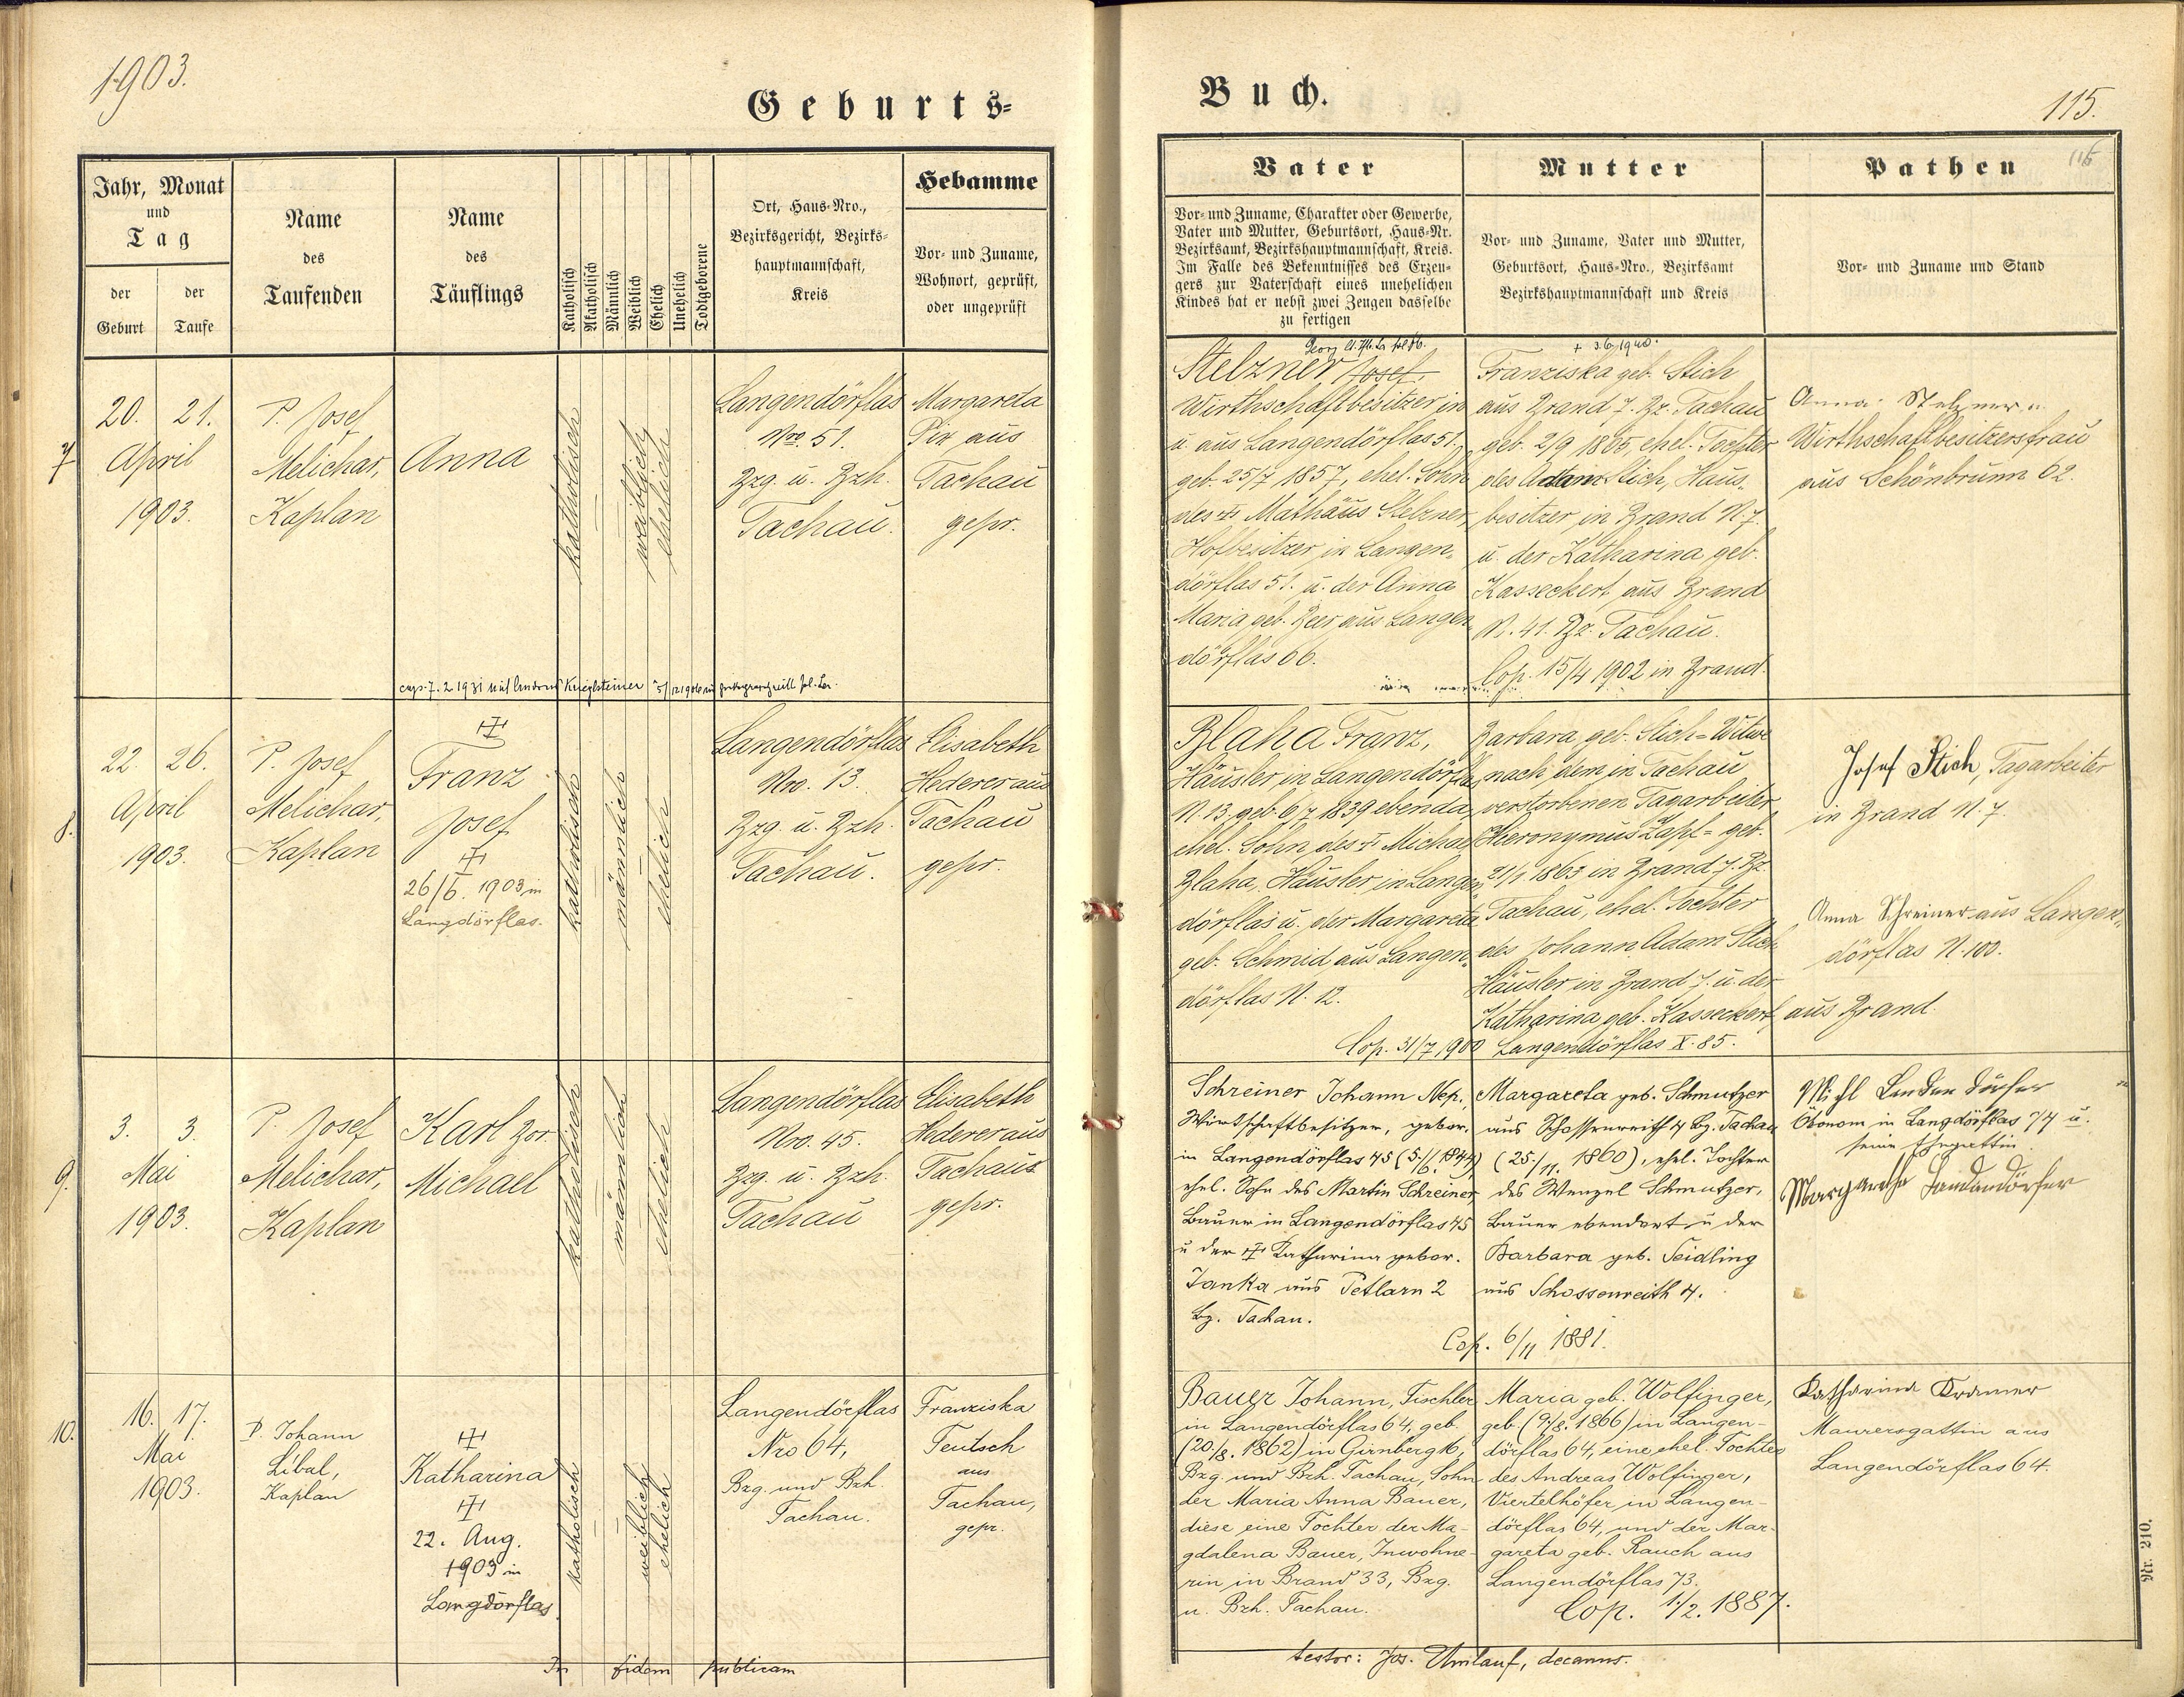 1903.
Geburts-
Jahr, Monat
und
Tag
der
Geburt
der
Taufe
Name
des
Taufenden
Name
des
Täuflings
Katholisch
Akatholisch
Männlich
Weiblich
Ehelich
Unehelich
Todtgeborene
Ort, Haus-Nro.,
Bezirksgericht, Bezirks-
hauptmannschaft,
Kreis
Hebamme
Vor- und Zuname,
Wohnort, geprüft,
oder ungeprüft
7
20. 21.
April
1903.
P. Josef
Melichar,
Kaplan
Anna
katholisch
weiblich
ehelich
Langendörflas
Nro 51.
Bzg. u. Bzh.
Tachau.
Margareta
Pix aus
Tachau
gepr.
cop. 7. 2 1931 mit Krieglsteiner
8.
22. 26.
April
1903.
P. Josef
Melichar,
Kaplan
Franz
Josef
26/6. 1903 in
Langdörflas.
katholisch
männlich
ehelich
Langendörflas
Nro. 13.
Bzg. u. Bzh.
Tachau.
Elisabeth
Hederer aus
Tachau
gepr.
9.
3. 3.
Mai
1903.
P. Josef
Melichar,
Kaplan
Karl Bor.
Michael
katholisch
männlich
ehelich
Langendörflas
Nro. 45.
Bzg. u. Bzh.
Tachau
Elisabeth
Hederer aus
Tachau
gepr.
10.
16. 17.
Mai
1903.
P. Johann
Libal,
Kaplan
Katharina
22. Aug.
1903 in
Langdörflas
katholisch
weiblich
ehelich
Langendörflas
Nro 64,
Bzg. und Bzh.
Tachau.
Franziska
Teutsch
aus
Tachau,
gepr.
In fidem publicam
Buch.
115.
Vater
Vor- und Zuname, Charakter oder Gewerbe,
Vater und Mutter, Geburtsort, Haus-Nr.
Bezirksamt, Bezirkshauptmannschaft, Kreis.
Im Falle des Bekenntnisses des Erzeu-
gers zur Vaterschaft eines unehelichen
Kindes hat er nebst zwei Zeugen dasselbe
zu fertigen
Mutter
Vor- und Zuname, Vater und Mutter,
Geburtsort, Haus-Nro., Bezirksamt
Bezirkshauptmannschaft und Kreis
Pathen
115
Vor- und Zuname und Stand
Georg
Stelzner Josef,
Wirthschaftbesitzer in
u. aus Langendörflas 51.
geb. 25/7 1857, ehel. Sohn
des † Mathäus Stelzner,
Hofbesitzer in Langen-
dörflas 51. u. der Anna
Maria geb. Beer aus Langen-
dörflas 66.
+ 3.6.1940.
Franziska geb. Stich
aus Brand 7. Bz. Tachau
geb. 2/9 1865, ehel. Tochter
des Adam Stich, Haus-
besitzer in Brand N. 7.
u. der Katharina geb.
Kasseckert aus Brand
N. 41. Bz. Tachau.
Cop. 15/4 1902 in Brand.
Anna Stelzner
Wirthschaftbesitzersfrau
aus Schönbrunn 62.
Blaha Franz,
Häusler in Langendörflas
N. 13. geb. 6/7 1839 ebenda,
ehel. Sohn des † Michael
Blaha, Häusler in Langen-
dörflas u. der Margareta
geb. Schmid aus Langen-
dörflas N. 12.
Cop. 31/7 1900 Langendörflas X. 85.
Barbara geb. Stich = Witwe
nach dem in Tachau
verstorbenen Tagarbeiter
Hieronymus Zapf = geb.
21/1 1863 in Brand 7. Bz.
Tachau, ehel. Tochter
des Johann Adam Stich
Häusler in Brand 7. u. der
Katharina geb. Kasseckert aus Brand.
Josef Stich, Tagarbeiter
in Brand N. 7.
Anna Schreiner aus Langen-
dörflas N. 100.
Schreiner Johann Nep.,
Wirtschaftbesitzer, gebor.
in Langendörflas 45 (5./6. 1844)
ehel. Sohn des Martin Schreiner
Bauer in Langendörflas 45
u der † Katharina gebor.
Janka aus Petlarn 2
bz. Tachau.
Margareta geb. Schmutzer
aus Schossenreith 4 bz. Tachau
(25./11. 1860), ehel. Tochter
des Wenzel Schmutzer,
Bauer ebendort u der
Barbara geb. Seidling
aus Schossenreith 4.
Cop. 6/11 1881.
Michl Landendörfer
Ökonom in Langdörflas 74 u.
seine Ehegattin
Margaretha Landendörfer
Bauer Johann, Tischler
in Langendörflas 64, geb
(20./8. 1862) in Girnberg 16,
Bzg. und Bzh. Tachau, Sohn
der Maria Anna Bauer,
diese eine Tochter der Ma-
gdalena Bauer, Inwohne-
rin in Brand 33, Bzg.
u. Bzh. Tachau.
Maria geb. Wolfinger,
geb. (9./8. 1866) in Langen-
dörflas 64, eine ehel. Tochter
des Andreas Wolfinger,
Viertelhöfer in Langen-
dörflas 64, und der Mar-
gareta geb. Rauch aus
Langendörflas 73.
Cop. 1./2. 1887.
Katharina Kramer
Maurersgattin aus
Langendörflas 64.
testor: Jos. Umlauf, decanus.
Nr. 210.